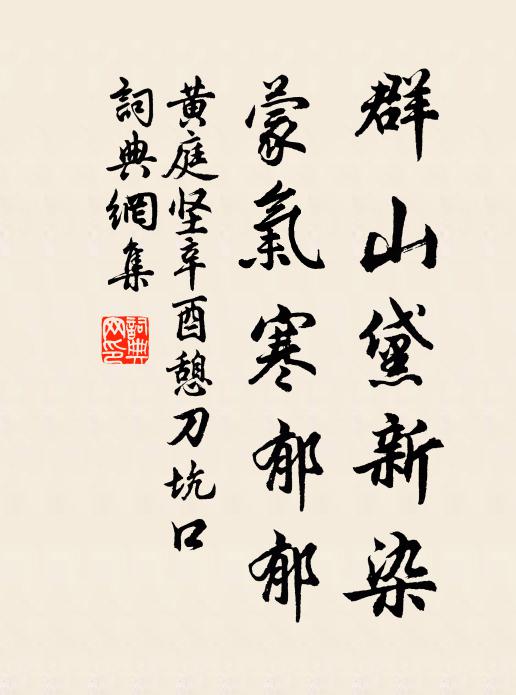 群山黛新染
蒙氣寒郁郁
黄庭坚辛酉憩刀坑口
詞典網集
詞典网印